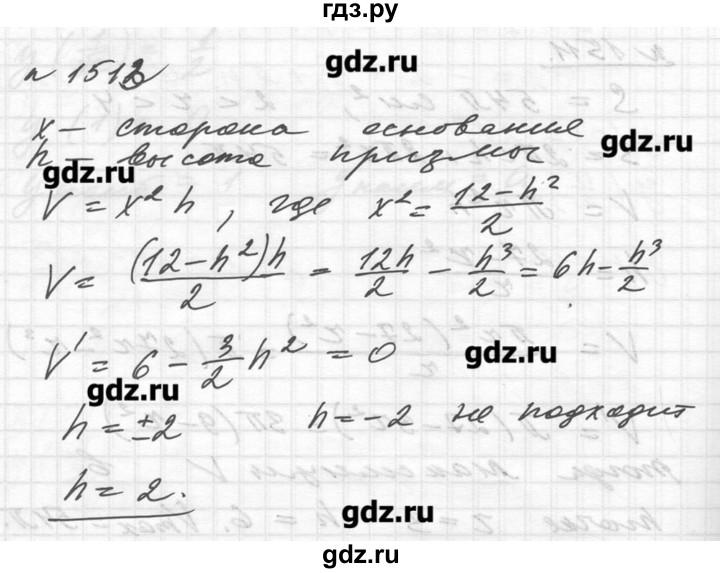 гдз.ру
n 1512
gdz.ru
x – сторона основание
gdz.ru
h – высота призмы
gdz.ru
V = x² h, где x² = (12 – h²)/2
V = (12 – h²)h/2 = 12h/2 – h³/2 = 6h – h³/2
V' = 6 – 3/2 h² = 0
gdz.ru
gdz.ru
h = ±2    h = –2 не подходит
h = 2.
gdz.ru
gdz.ru